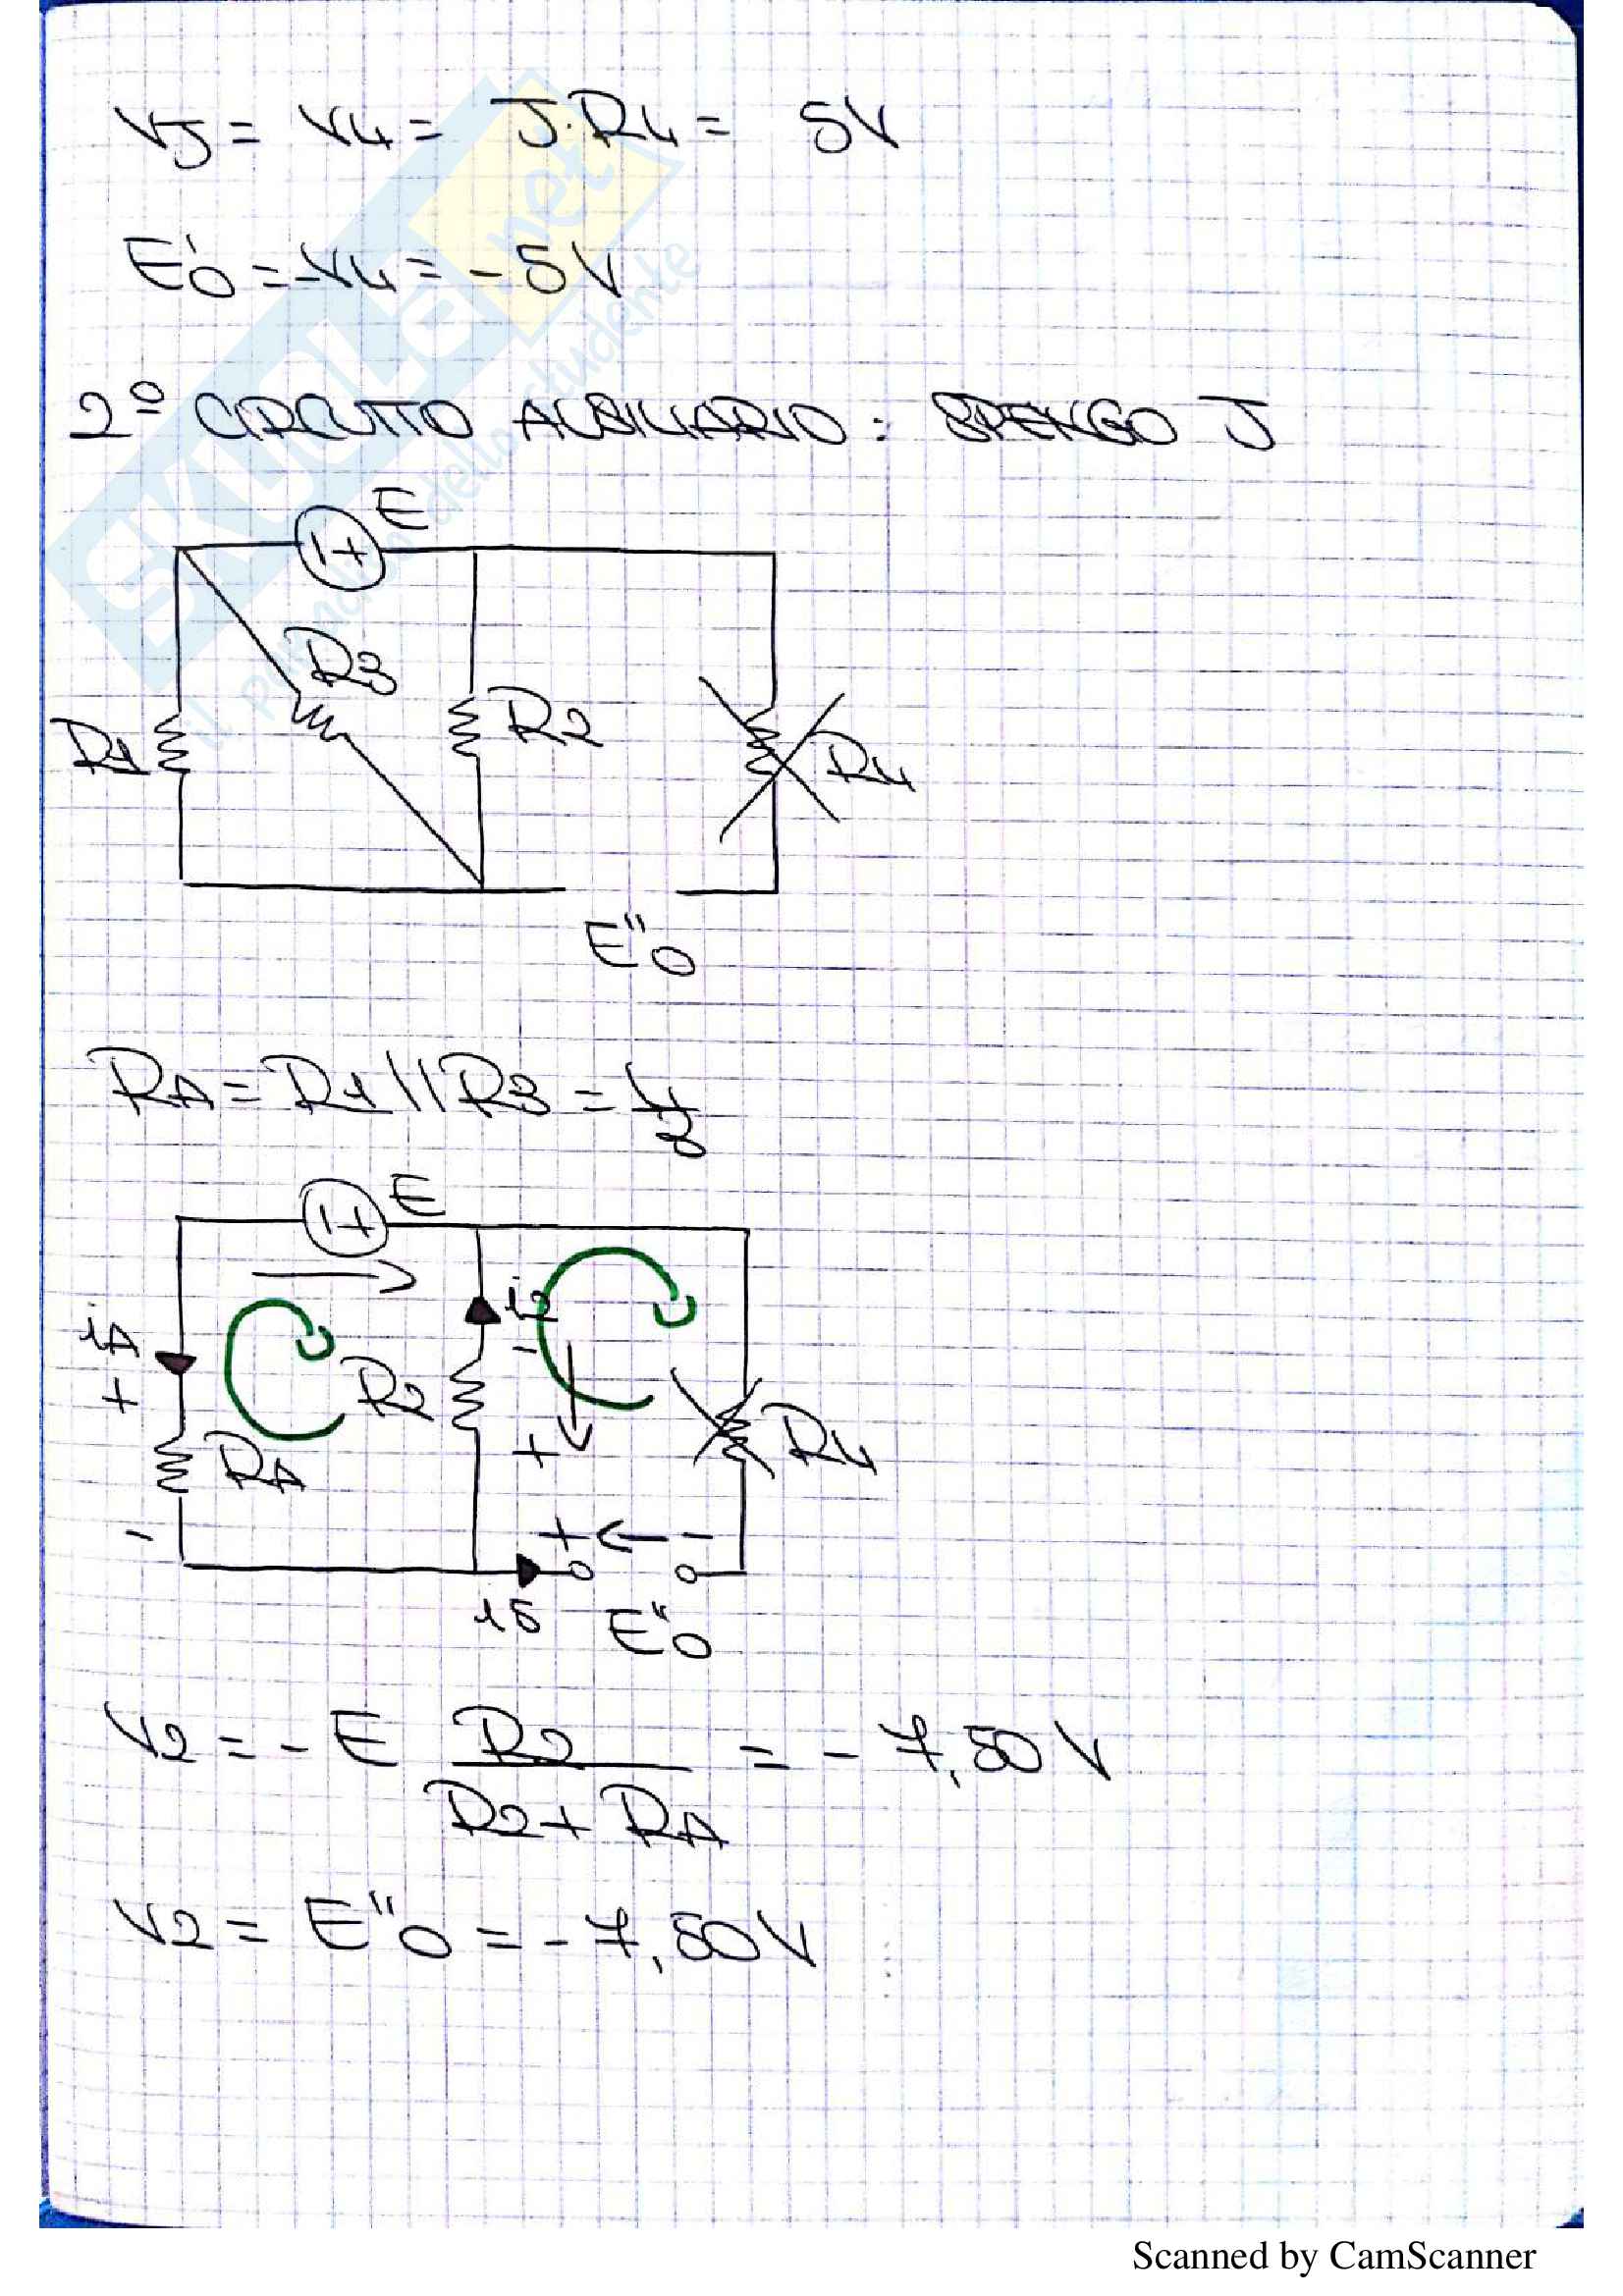 VJ = V4 = J·R4 = 5V
E'0 = -V4 = -5V
2° CIRCUITO AUSILIARIO: SPENGO J
E
R3
R1
R2
R4
E"0
RA = R1 // R3 = 4/3
E
iA
i2
-
+
R2
+
RA
R4
-
+ -
i5
E"0
V2 = - E R2 / R2 + RA = - 7,50 V
V2 = E"0 = - 7,50 V
SKUOLA.net
il paradiso dello studente
Scanned by CamScanner